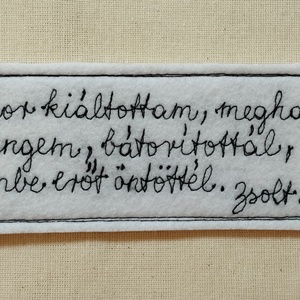 or kiáltottam, megha
ngem, bátorítottál,
nbe erőt öntöttél.
Zsolt.